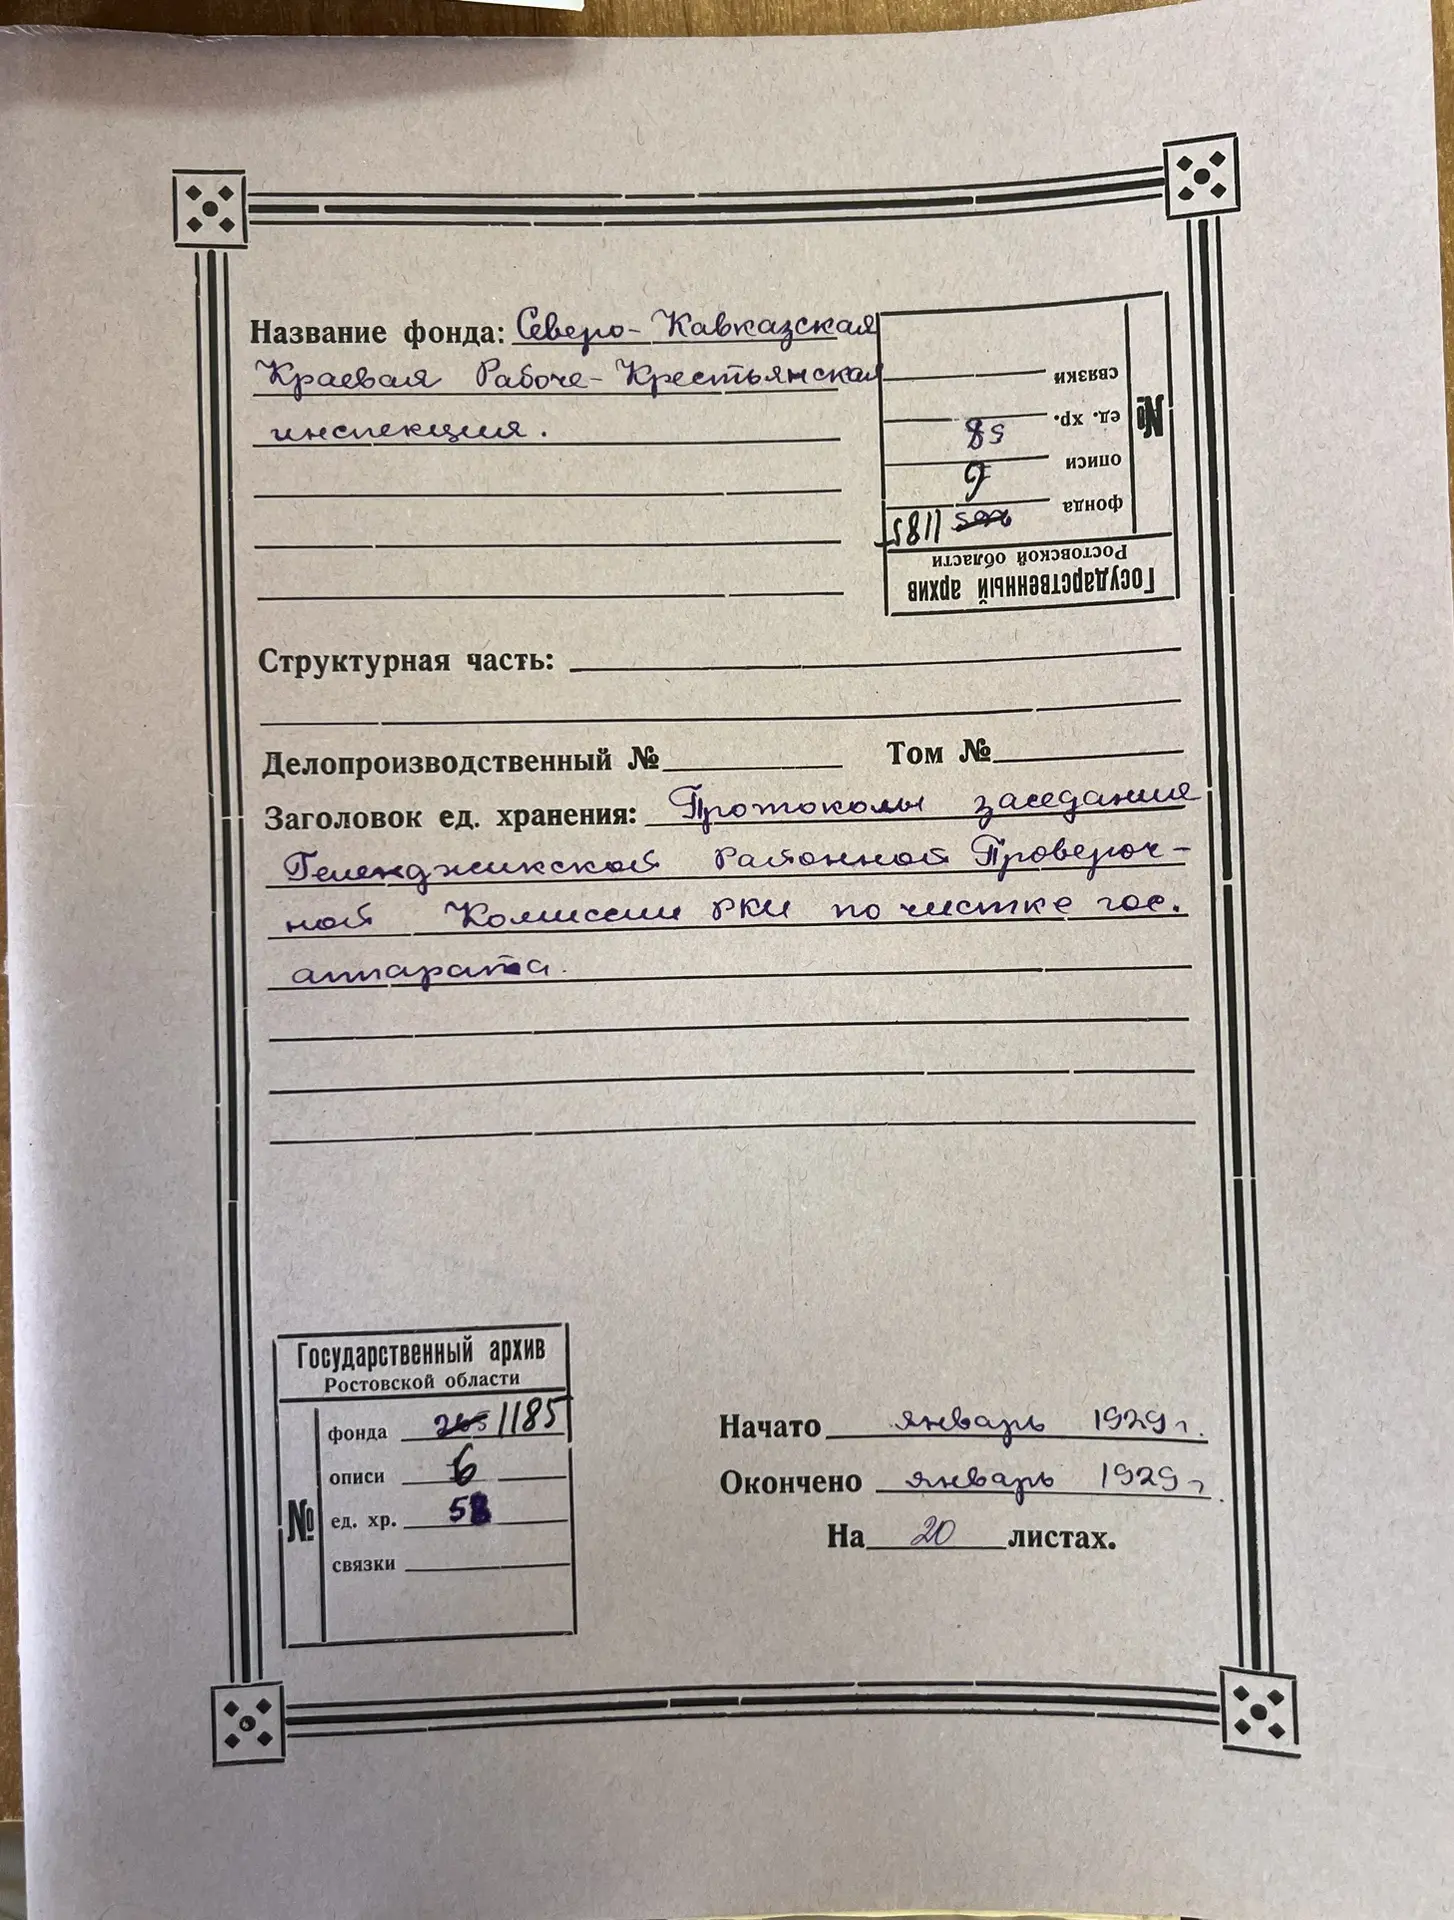 Название фонда: Северо-Кавказская
Краевая Рабоче-Крестьянская
инспекция.
Государственный архив
Ростовской области
№
фонда 1185
описи 6
ед. хр. 58
связки
Структурная часть:
Делопроизводственный № Том №
Заголовок ед. хранения: Протоколы заседания
Геленджикской Районной Провероч-
ной Комиссии РКИ по чистке гос.
аппарата.
Государственный архив
Ростовской области
№
фонда 265 1185
описи 6
ед. хр. 58
связки
Начато январь 1929 г.
Окончено январь 1929 г.
На 20 листах.